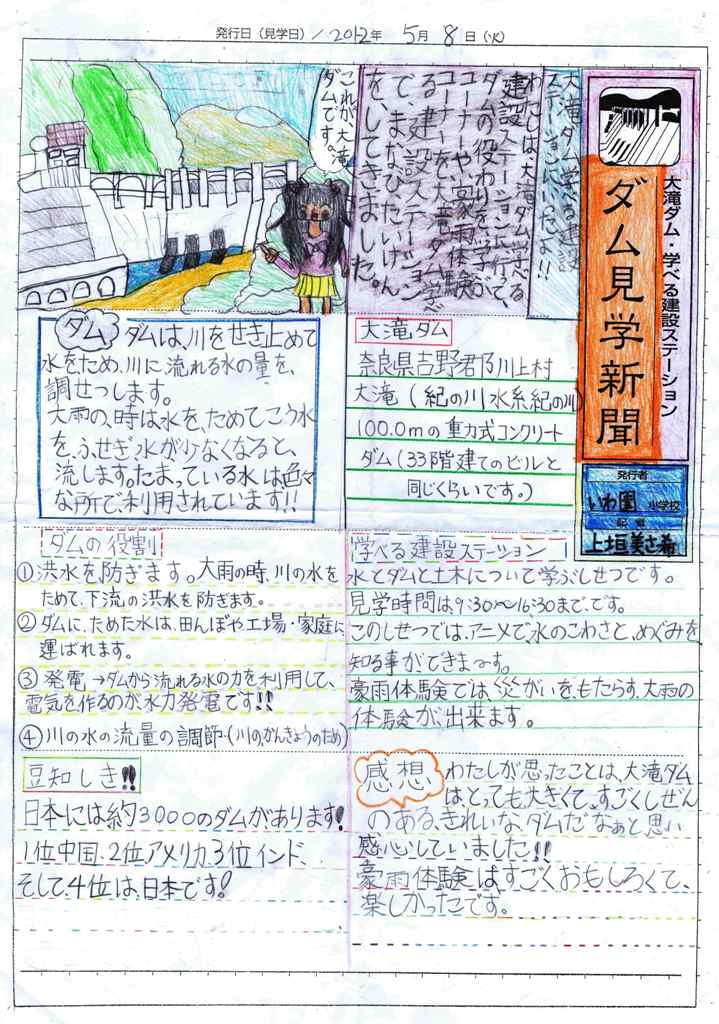 発行日（見学日）／2012年 5月 8日（火）
大滝ダム・学べる建設ステーション
ダム見学新聞
発行者
いわ園 小学校
記者
上垣美さ希
大滝ダム学べる建設
ステーションにいったよ!!
わたしは、大滝ダム学べる
建設ステーションに行って、
ダムの役わりを学ぶ
コーナーや、豪雨体験
コーナーを大滝ダム学べ
る建設ステーション
で、まなびたいけん
をしてきました。
これが大滝
ダムです。
ダム
ダムは、川をせき止めて
水をため、川に流れる水の量を、
調せつします。
大雨の、時は水を、ためてこう水
を、ふせぎ水が少なくなると、
流します。たまっている水は色々
な所で、利用されています!!
大滝ダム
奈良県吉野郡川上村
大滝（紀の川水系紀の川）
100.0mの重力式コンクリート
ダム（33階建てのビルと
同じくらいです。）
ダムの役割
①洪水を防ぎます。大雨の時、川の水を
ためて、下流の洪水を防ぎます。
②ダムに、ためた水は、田んぼや工場・家庭に
運ばれます。
③発電→ダムから流れる水の力を利用して、
電気を作るのが、水力発電です!!
④川の水の流量の調節（川の、かんきょうのため）
学べる建設ステーション
水とダムと土木について学ぶしせつです。
見学時間は9:30〜16:30まで、です。
このしせつでは、アニメで、水のこわさと、めぐみを
知る事ができまーす。
豪雨体験では、災がいを、もたらす、大雨の
体験が、出来ます。
豆知しき!!
日本には約3000のダムがあります!
1位中国、2位アメリカ、3位インド、
そして、4位は、日本です!
感想
わたしが思ったことは、大滝ダム
は、とっても、大きくて、すごくしぜん
のある、きれいな、ダムだなぁと、思い
感心していました!!
豪雨体験はすごくおもしろくて、
楽しかったです。